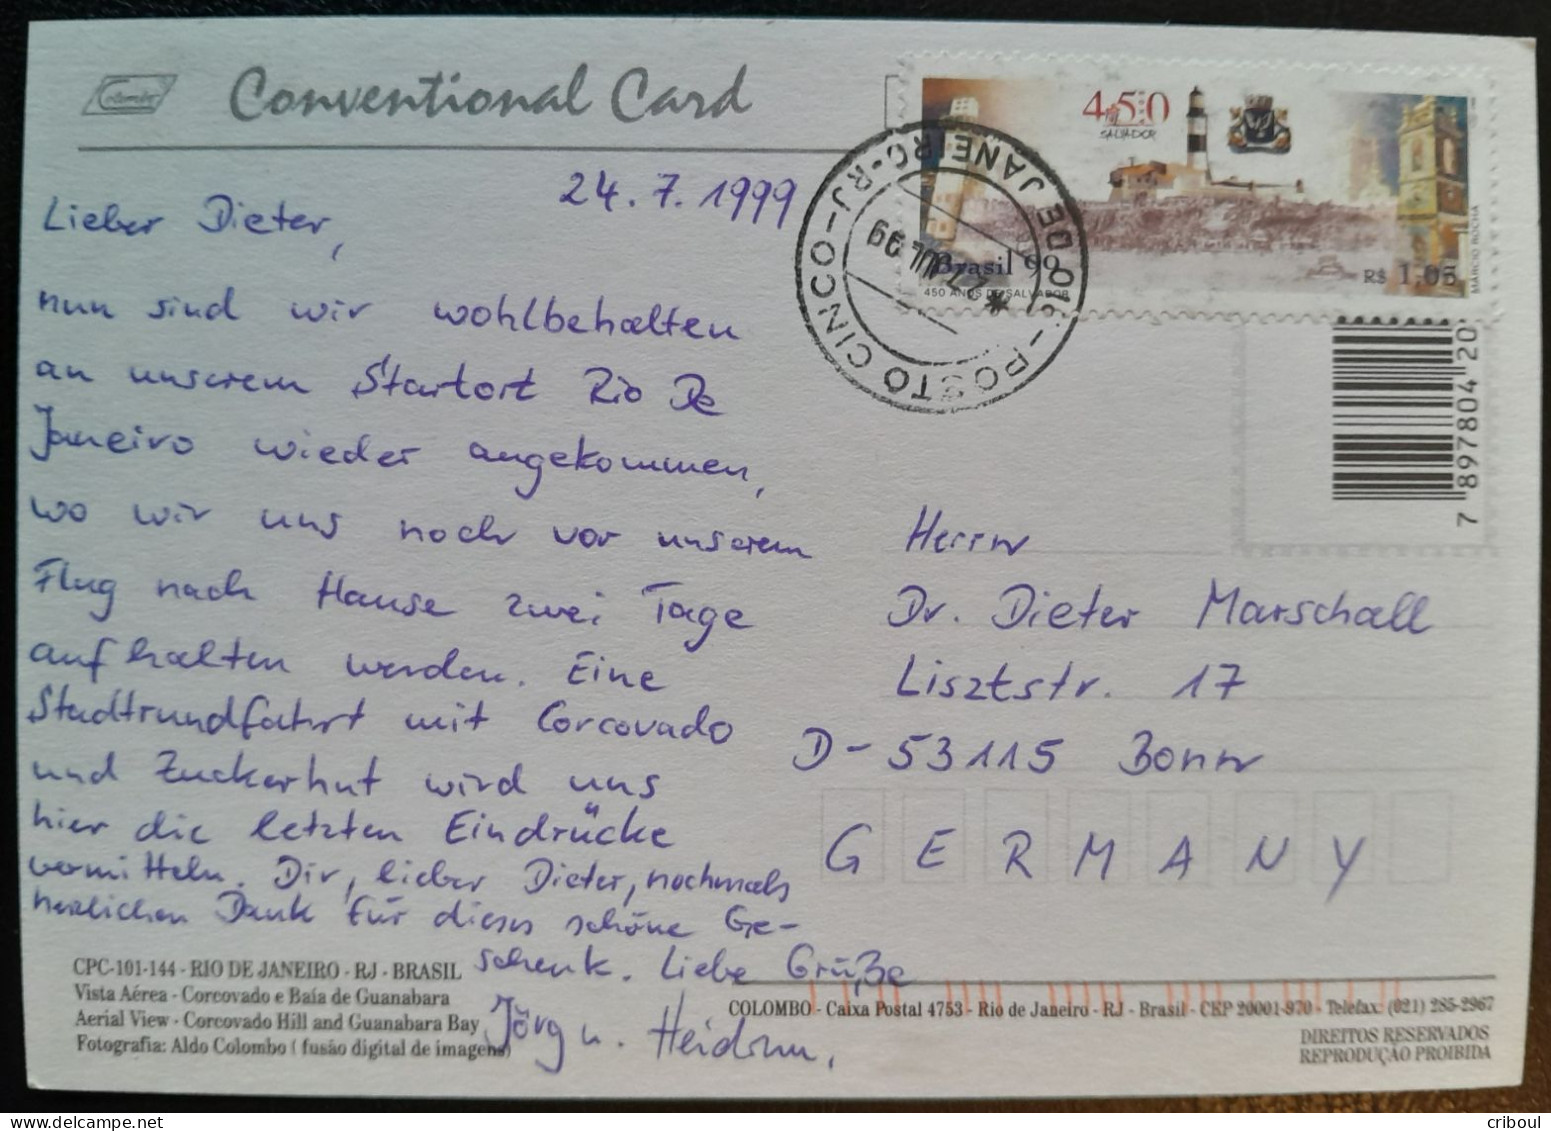 Colombo
Conventional Card
450
ANOS
SALVADOR
Brasil 99
450 ANOS DE SALVADOR
R$ 1,05
MÁRCIO ROCHA
POSTO CINCO-RJ
DE JANEIRO-RJ
27 JUL 99
7 897804 20
24.7.1999
Lieber Dieter,
nun sind wir wohlbehalten
an unserem Startort Rio De
Janeiro wieder angekommen,
wo wir uns noch vor unserem
Flug nach Hause zwei Tage
aufhalten werden. Eine
Stadtrundfahrt mit Corcovado
und Zuckerhut wird uns
hier die letzten Eindrücke
vermitteln. Dir, lieber Dieter, nochmals
herzlichen Dank für dieses schöne Ge-
schenk. Liebe Grüße
Jörg u. Heidrun,
Herrn
Dr. Dieter Marschall
Lisztstr. 17
D-53115 Bonn
GERMANY
CPC-101-144 - RIO DE JANEIRO - RJ - BRASIL
Vista Aérea - Corcovado e Baía de Guanabara
Aerial View - Corcovado Hill and Guanabara Bay
Fotografia: Aldo Colombo ( fusão digital de imagens)
COLOMBO - Caixa Postal 4753 - Rio de Janeiro - RJ - Brasil - CEP 20001-970 - Telefax: (021) 285-2967
DIREITOS RESERVADOS
REPRODUÇÃO PROIBIDA
criboul